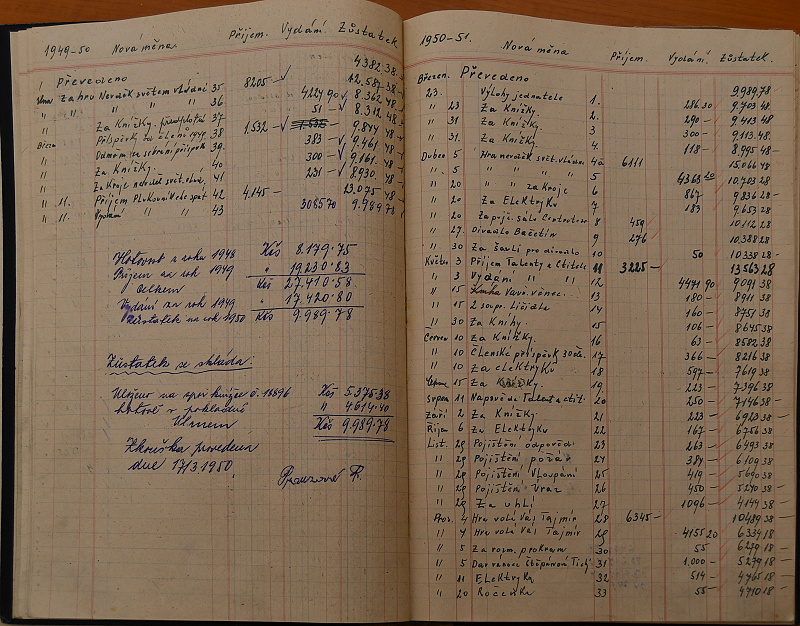 1949-50 Nová měna. Příjem. Vydání. Zůstatek
Převedeno 4382.38
Za hru Nevázák světem vládní 35 8205.- 12.587.38
" " " 36 4224 90 8.362.48
" " " 37 51 - 8.312 48
Za Knížky. 38 1.532 9.844 48
383 - 9.461 48
Za Knížky. 40 300 - 9.161. 48
Za Kroje 41 231 - 8930. 48
Příjem 42 4.145.- 13.075 48
Vydání " " 43 3085 70 9.989 78
Hotovost z roku 1948 Kčs 8.179.75
Příjem za rok 1949 " 19.230.83
Celkem Kčs 27.410.58
Vydání za rok 1949 " 17.420.80
Zůstatek na rok 1950 Kčs 9.989.78
Zůstatek se skládá:
Uloženo na spoř. knížce č. 18896 Kčs 5.375.38
Hotově v pokladně " 4.614.40
Úhrnem Kčs 9.989.78
Zkouška provedena
dne 17/3 1950
1950-51. Nová měna Příjem. Vydání. Zůstatek.
Březen. Převedeno 9.989.78
23. Výlohy jednatele 1. 286 30 9.703 48
" 23 Za Knížky. 2. 290 - 9.413 48
" 31 Za Knížky. 3 300 - 9.113. 48
" 31. Za Knížky. 4. 118 - 8.995 48
Duben 5 Hra 4a 6111 15.066 48
" 5 " " 5 4363 20 10.703 28
" 20 " " za Kroje 6 867 9836 28
" 20 Za Elektryku 7 183 9.653 28
" 20 8 459 10.112 28
" 27. Divadlo Bačetín 9 276 10.388 28
" 30 Za pro divadlo 10 50 10.338 28
Květen 3 Příjem Talenty a Ctitelé 11 3225 13563 28
" 3 Vydání " " 12 4471 90 9091 38
" 15 Kniha 13 180 - 8911 38
" 15 2 líčidla 14 160 - 8751 38
" 30 Za Knihy. 15 106 - 8645 38
Červen 10 Za Knížky. 16 63 - 8582 38
" 10 Členské příspěvky 17 366 - 8216 38
" 10 Za elektryku 18 597 - 7619 38
15 Za Knížky. 19 223 - 7396 38
Srpen 11 Nápověda Talent a ctit. 20 250 - 7146 38
Září 2 Za Knížky. 21 223 - 6923 38
Říjen 6 Za Elektryku 22 167 - 6756 38
List. 29 Pojištění odpověd. 23 263 - 6493 38
" 29 Pojištění požár 24 384 - 6109 38
" 29 Pojištění Vloupání 25 419 - 5690 38
" 29 Pojištění Úraz 26 450 - 5240 38
" 29 Za uhlí 27 1096 - 4144 38
Pros. 4 Hra volá Vás Tajmír 28 6345 - 10489 38
" 4 Hra volá Vás Tajmír 29 4155 20 6334 18
" 5 Za rozm. program 30 55 6279 18
" 5 Dar 31 1.000 - 5279 18
" 11 Elektryka 32 514 - 4765 18
" 20 Ročenka 33 55 - 4710 18